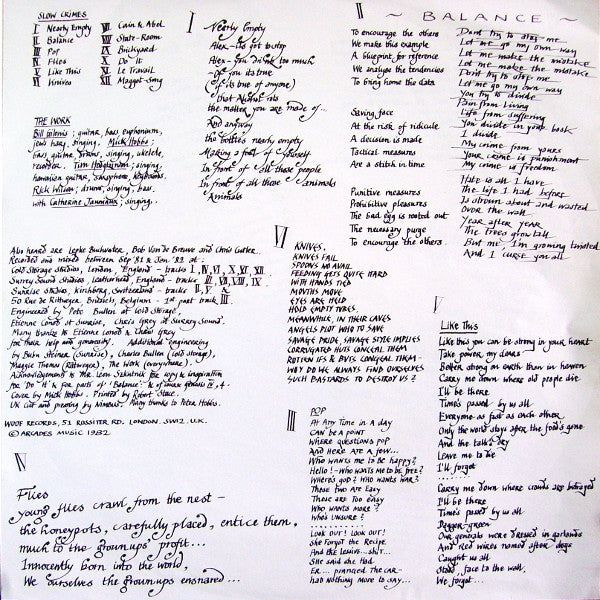 SLOW CRIMES
I Nearly Empty
II Balance
III Pop
IV Flies
V Like This
VI Knives
VII Cain & Abel
VIII State-Room
IX Brickyard
X Do it
XI Le Travail
XII Maggot-Song
THE WORK
Bill Gilonis; guitar, bass, euphonium,
jews harp, singing. Mick Hobbs;
bass, guitar, drums, singing, ukelele,
recorder. Tim Hodgkinson; singing,
hawaiian guitar, saxophone, keyboards.
Rick Wilson; drums, singing, bass.
with Catherine Jauniaux; singing.
Also heard are Lepke Buchwater, Bob Van de Breuve and Chris Cutler.
Recorded and mixed between Sep '81 & Jan '82 at:
Cold Storage Studios, London, England - tracks I, IV, VI, X, XI, XII.
Surrey Sound Studios, Leatherhead, England - tracks
Sunrise Studios, Kirchberg, Switzerland - tracks II, V, &
50 Rue de Rittweger, Brussels, Belgium - 1st part track III.
Engineered by Pete Bullen at Cold Storage,
Etienne Conod at Sunrise, Chris Grey at Surrey Sound.
Many thanks to Etienne Conod & Chris Grey
for their help and generosity. Additional engineering
by Bush Steiner (Sunrise), Charles Bullen (Cold Storage),
Maggie Thomas (Rittweger), The Work (everywhere).
Acknowledgement to Mr. Leon Schutnik for copy & inspiration
for 'Do it' & for parts of 'Balance'
Cover by Mick Hobbs. Printed by Robert Stace.
UK cut and pressing by Nimbus. Many thanks to Peta Hobbs.
WOOF RECORDS, 51 ROSSITER RD, LONDON, SW12, U.K.
© ARCADES MUSIC 1982
I
Nearly Empty
Alex - its got to stop
Alex - you drink too much
- of you its true
(if its true of anyone)
that Alcohol rots
the matter you are made of...
And anyway
the bottles nearly empty
Making a fool of yourself
In front of all those people
In front of all those animals
Animals
II
~ BALANCE ~
To encourage the others
We make this example
A blueprint for reference
We analyse the tendencies
To bring home the data
Saving face
At the risk of ridicule
A decision is made
Tactical measures
Are a stitch in time
Punitive measures
Prohibitive pleasures
The bad egg is rooted out
The necessary purge
To encourage the others
Dont try to stop me
Let me go my own way
Let me make the mistake
Let me make the mistake
Dont try to stop me
Let me go my own way
You try to divide
Pain from living
Life from suffering
You divide in your book
I divide
My crime from yours
Your crime is punishment
My crime is freedom
Hate is all I have
The life I had before
Is drowned about and wasted
Over the wall
Year after year
The trees grow tall
But me I'm growing twisted
And I curse you all
VI
KNIVES.
KNIVES FAIL
SPOONS NO AVAIL
FEEDING GETS QUITE HARD
WITH HANDS TIED
MOUTHS MOVE
EYES ARE HELD
HOLD EMPTY TYRES.
MEANWHILE, IN THEIR CAVES
ANGELS PLOT WHO TO SAVE
SAVAGE PRIDE, SAVAGE STYLE IMPLIES
CORRUGATED HUTS CONCEAL THEM
ROTTEN IFS & BUTS CONCEAL THEM -
WHY DO WE ALWAYS FIND OURSELVES
SUCH BASTARDS TO DESTROY US?
III
POP
At Any Time in a Day
Can be a point
Where questions pop
And Here are a few...
Who wants me to be happy?
Hello! - Who wants me to be free?
Where's god? Who wants war?
These two are easy
These are too easy
Who wants more?
Who's unsure?
..........
Look out! Look out!
She forgot the Recipe
And the lemurs... shit...
She said she had
Er... pranged the car-
had nothing more to say...
V
Like This
Like this you can be strong in your heart
Take power, my dears
Better strong on earth than in heaven
Carry me down where old people die
I'll be there
Time's passed by us all
Everyone as fast as each other
Only the world stays after the food's gone
And the talk's dry
Leave me to die
I'll forget
........
Carry me down where crowds are betrayed
I'll be there
Time's passed by us all
Beggar-green
Our generals were dressed in garlands
And Red wires named after dogs
Caught us all
Stood, face to the wall,
We forget...
IV
Flies
young flies crawl from the nest -
the honeypots, carefully placed, entice them,
much to the grownups' profit...
Innocently born into the world,
We ourselves the grownups ensnared...